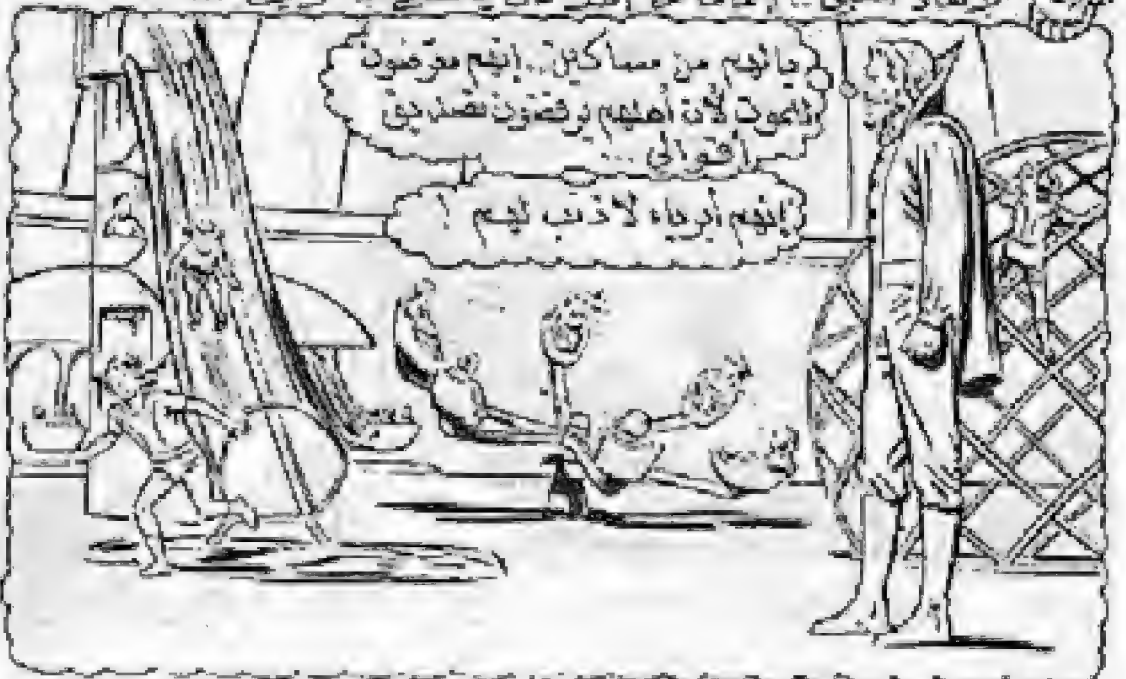 يالهم من مساكين.. إنهم معرضون
للموت لأن أهلهم يرفضون تصديق
أقوالي ...
إنهم أبرياء لا ذنب لهم !